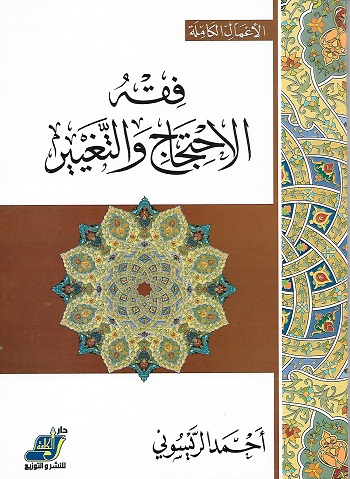 الأعمال الكاملة
فِقْهُ
الاحْتِجَاجِ وَالتَّغْيِيرِ
أحمد الريسوني
دار
الكلمة
للنشر والتوزيع